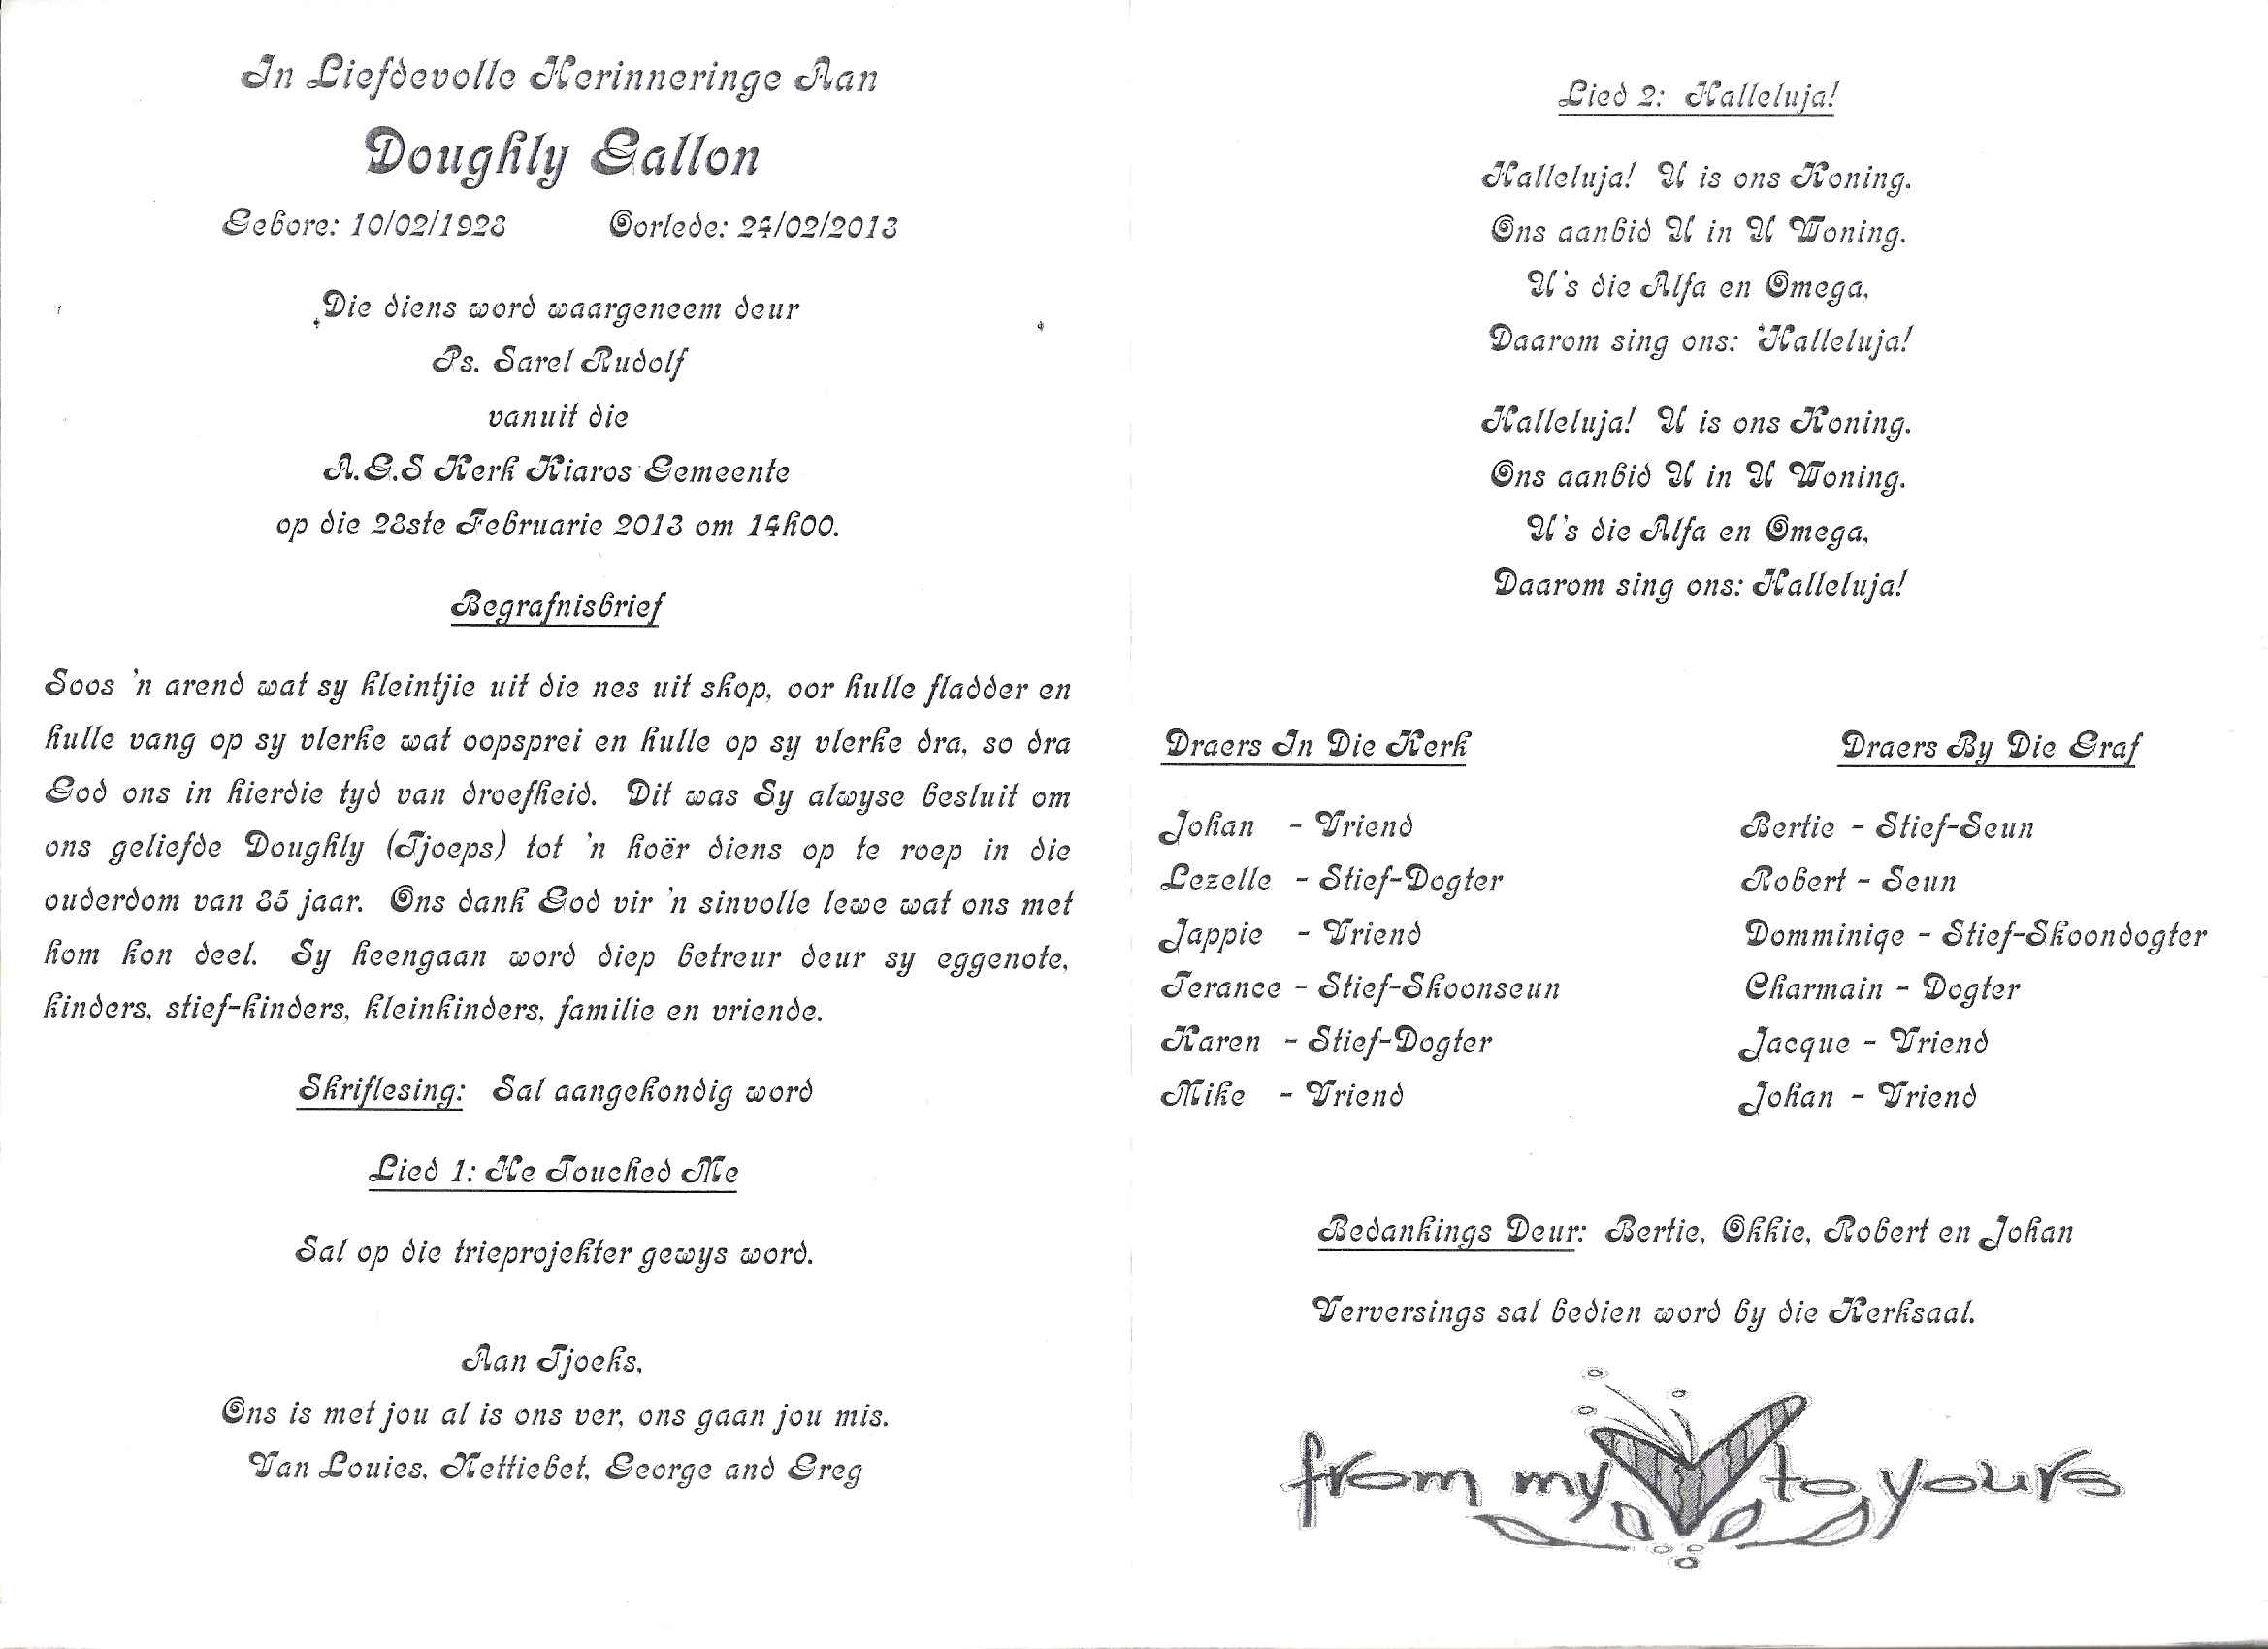 In Liefdevolle Herinneringe Aan
Doughly Gallon
Gebore: 10/02/1928 Oorlede: 24/02/2013
Die diens word waargeneem deur
Ps. Sarel Rudolf
vanuit die
A.G.S Kerk Kiaros Gemeente
op die 28ste Februarie 2013 om 14h00.
Begrafnisbrief
Soos 'n arend wat sy kleintjie uit die nes uit skop, oor hulle fladder en
hulle vang op sy vlerke wat oopsprei en hulle op sy vlerke dra, so dra
God ons in hierdie tyd van droefheid. Dit was Sy alwyse besluit om
ons geliefde Doughly (Tjoeps) tot 'n hoër diens op te roep in die
ouderdom van 85 jaar. Ons dank God vir 'n sinvolle lewe wat ons met
hom kon deel. Sy heengaan word diep betreur deur sy eggenote,
kinders, stief-kinders, kleinkinders, familie en vriende.
Skriflesing: Sal aangekondig word
Lied 1: He Touched Me
Sal op die trieprojekter gewys word.
Aan Tjoeks,
Ons is met jou al is ons ver, ons gaan jou mis.
Van Louies, Nettiebet, George and Greg
Lied 2: Halleluja!
Halleluja! U is ons Koning.
Ons aanbid U in U Woning.
U's die Alfa en Omega,
Daarom sing ons: 'Halleluja!
Halleluja! U is ons Koning.
Ons aanbid U in U Woning.
U's die Alfa en Omega,
Daarom sing ons: Halleluja!
Draers In Die Kerk
Johan - Vriend
Lezelle - Stief-Dogter
Jappie - Vriend
Terance - Stief-Skoonseun
Karen - Stief-Dogter
Mike - Vriend
Draers By Die Graf
Bertie - Stief-Seun
Robert - Seun
Domminiqe - Stief-Skoondogter
Charmain - Dogter
Jacque - Vriend
Johan - Vriend
Bedankings Deur: Bertie, Okkie, Robert en Johan
Verversings sal bedien word by die Kerksaal.
from my to yours